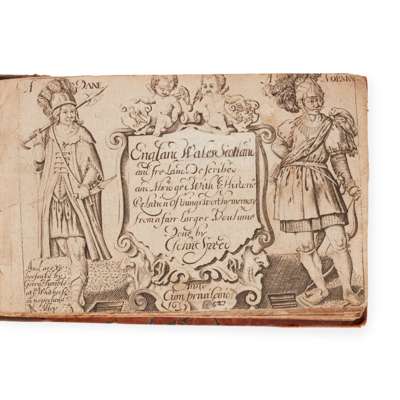 A DANE
A NORMAN
England Wales Scotland
and Ireland Described
and Abridged With ye Historic
Relation of things worthy memory
from a farr larger Voulume
Done by
John Speed
Anno
Cum privilegio